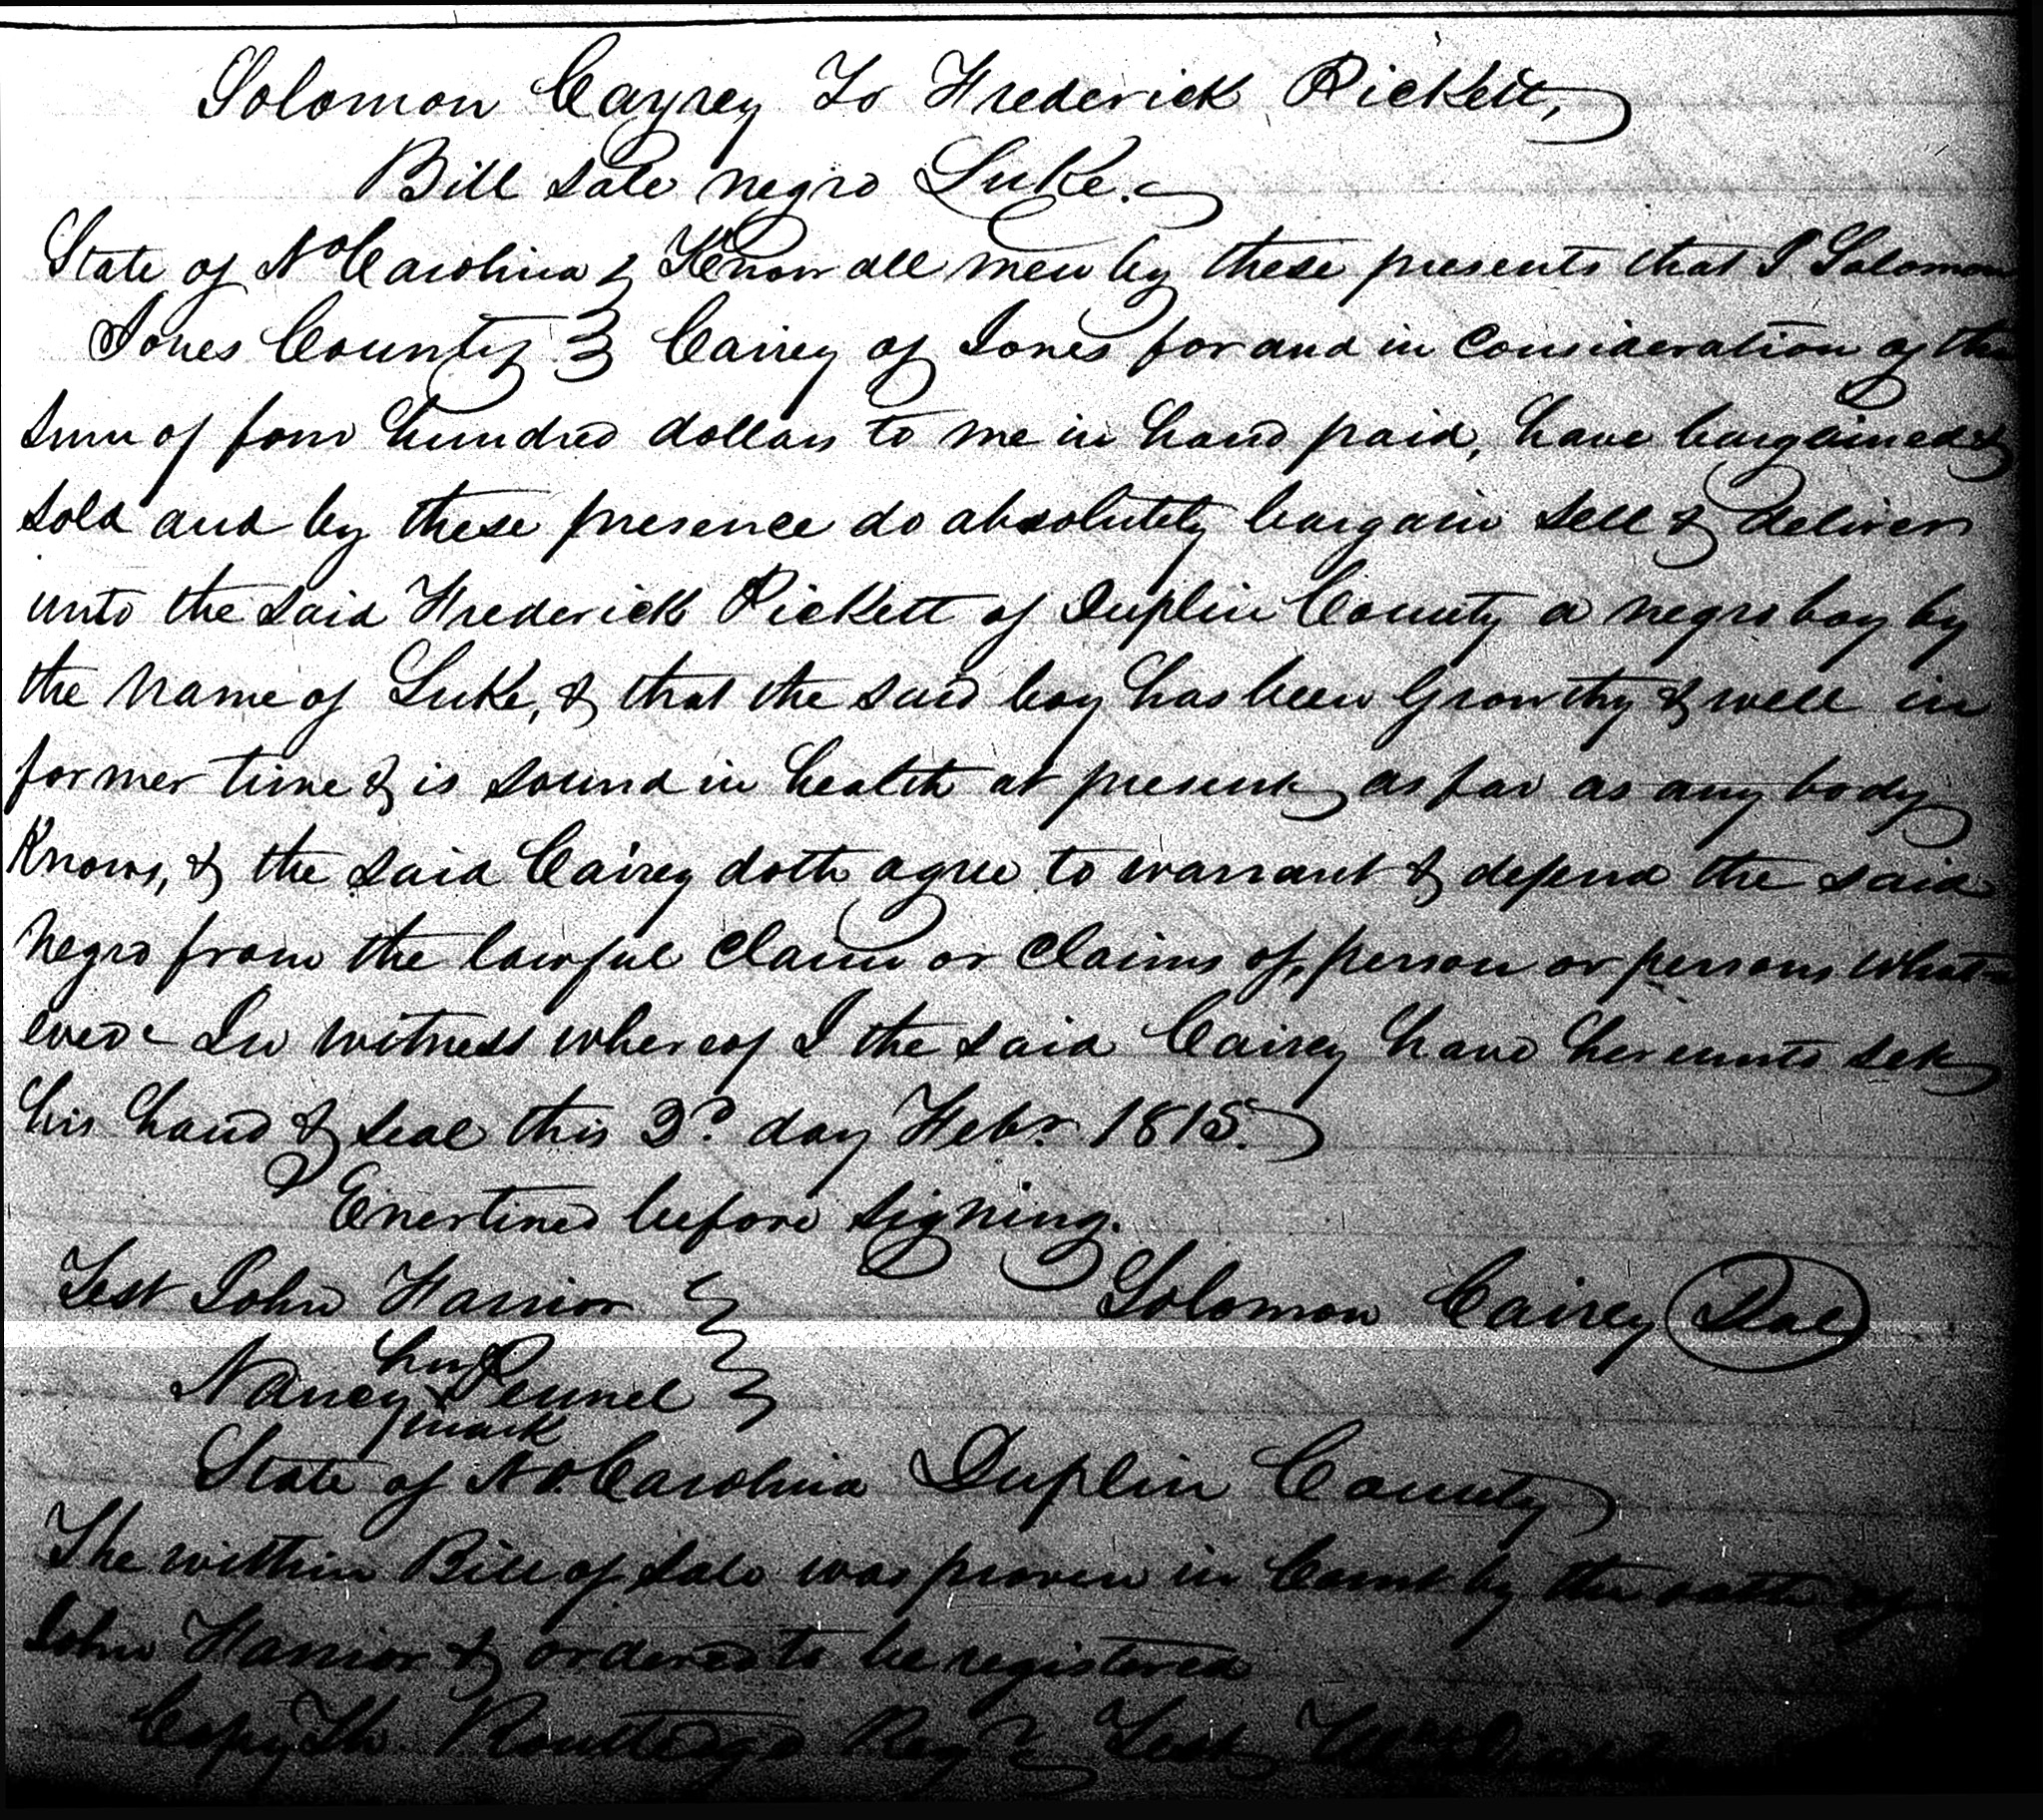 Solomon Cayrey To Frederick Pickett,
Bill sale negro Luke.
State of No Carolina } Know all men by these presents that I Solomon
Jones County } Cairey of Jones for and in consideration of the
sum of four hundred dollars to me in hand paid, have bargained &
sold and by these presence do absolutely bargain sell & deliver
unto the said Frederick Pickett of Duplin County a negro boy by
the name of Luke, & that the said boy has been Growthy & well in
former time & is sound in health at present as far as any body
Knows, & the said Cairey doth agree to warrant & defend the said
Negro from the lawful claim or claims of, person or persons what-
ever - In witness whereof I the said Cairey have hereunto set
his hand & seal this 3d. day Febr. 1815.
Enertined before signing.
Test John Harrior } Solomon Cairey Seal
her
Nancy Pennel }
mark
State of No. Carolina Duplin County
The within Bill of Sale was proven in Court by the oath of
John Harrior & ordered to be registered
Copy Th. Routledge Regr. Test Wm